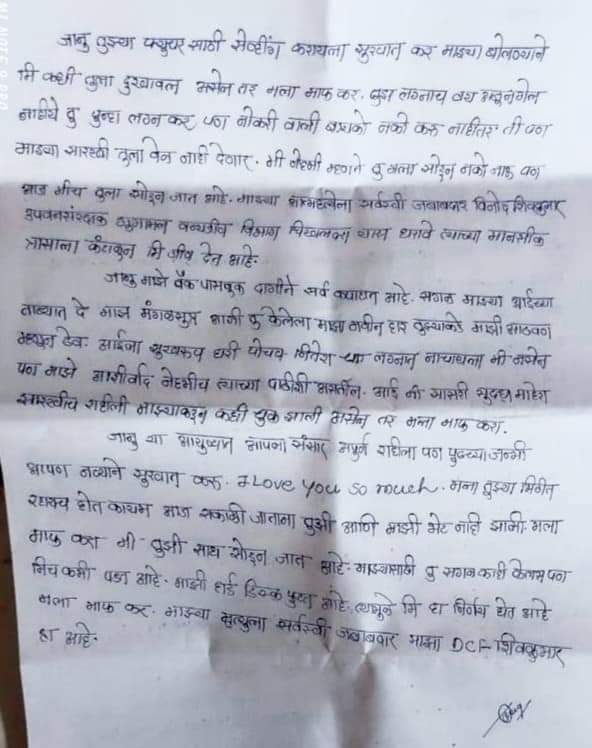 जानु तुझ्या फ्युचर साठी सेव्हींग करायला सुरवात कर माझ्या बोलण्याने
मि कधी तुला दुखावल असेल तर मला माफ कर. तुझ लग्नाच वय अजून गेल
नाहीये तु पुन्हा लग्न कर पण नोकरी वाली बायको नको करू नाहीतर ती पण
माझ्या सारखी तुला वेळ नाही देणार. मी नेहमी म्हणते तु मला सोडून नको जाऊ पण
आज मीच तुला सोडून जात आहे. माझ्या आत्महत्येला सर्वस्वी जबाबदार विनोद शिवकुमार
उपवनसंरक्षक गुगामल वन्यजीव विभाग चिखलदरा यास धरावे त्याच्या मानसीक
त्रासाला कंटाळून मि जीव देत आहे.
जानु माझे बँक पासबुक दागीने सर्व कपाटात आहे. सगळ माझ्या आईच्या
ताब्यात दे माझ मंगळसुत्र आणी तु केलेला माझा नवीन हार तुझ्याकडे माझी आठवण
म्हणून ठेव. आईला सुखरूप घरी पोचव. नितेश च्या लग्नात नाचायला मी नसेल
पण माझे आशीर्वाद नेहमीच त्याच्या पाठीशी असतील. आई मी सासरी सुद्धा माहेरा
सारखीच राहीली माझ्याकडून कधी चुक झाली असेल तर मला माफ करा.
जानु या आयुष्यात आपला संसार अपुर्ण राहीला पण पुढच्या जन्मी
आपण नव्याने सुरवात करू. I Love you so much. मला तुझ्या मिठीत
रहायच होत कायम आज सकाळी जाताना तुझी आणि माझी भेट नाही झाली. मला
माफ कर मी तुझी साथ सोडून जात आहे. माझ्यासाठी तु सगळ काही केलस पण
मिच कमी पडत आहे. माझी हार्ड डिस्क फुल्ल आहे. त्यामुळे मि हा निर्णय घेत आहे
मला माफ कर. माझ्या मृत्युला सर्वस्वी जबाबदार माझा DCF शिवकुमार
हा आहे.